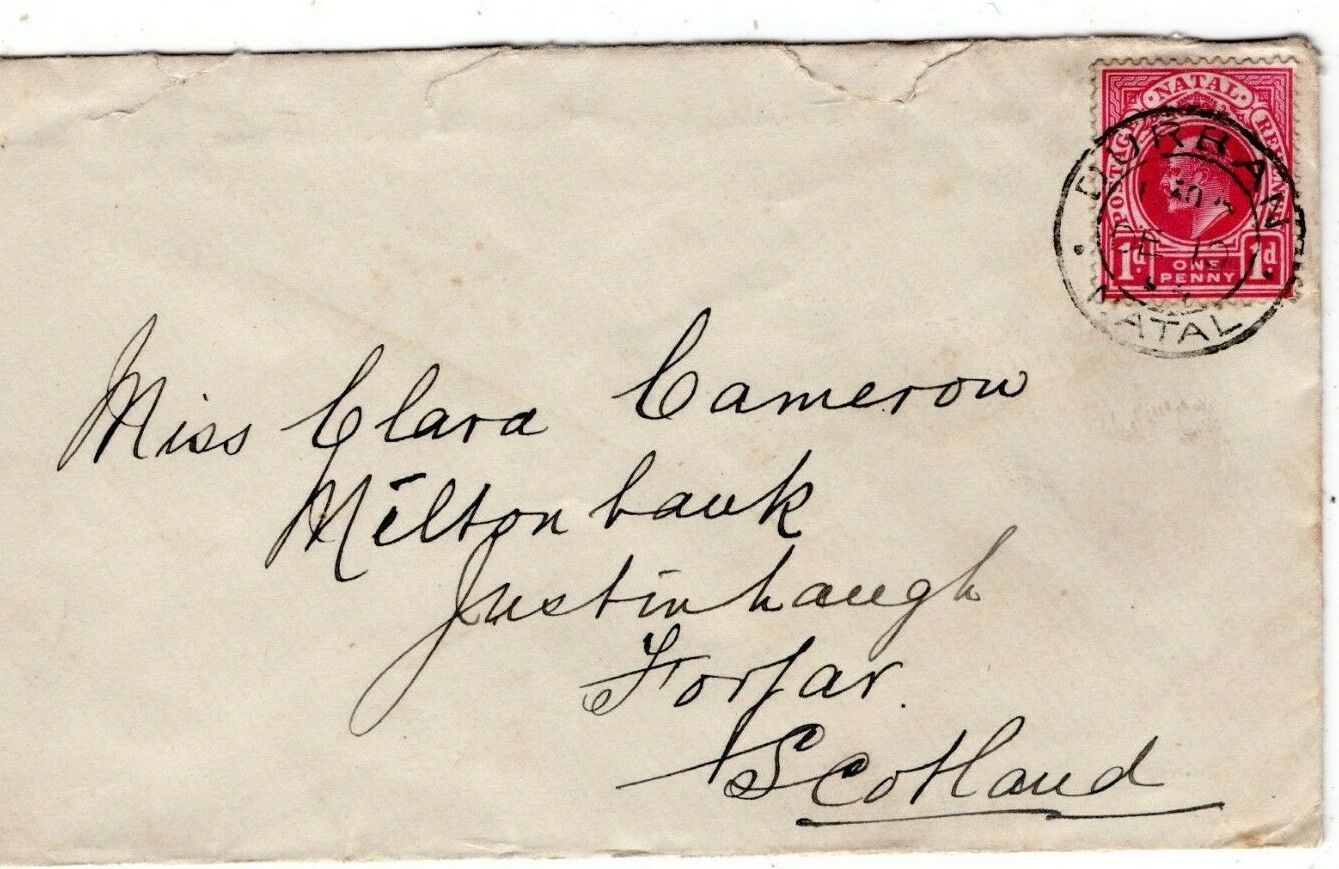 NATAL
POSTAGE REVENUE
1d ONE PENNY 1d
DURBAN
DE 10
NATAL
Miss Clara Cameron
Milton bank
Justinhaugh
Forfar.
Scotland